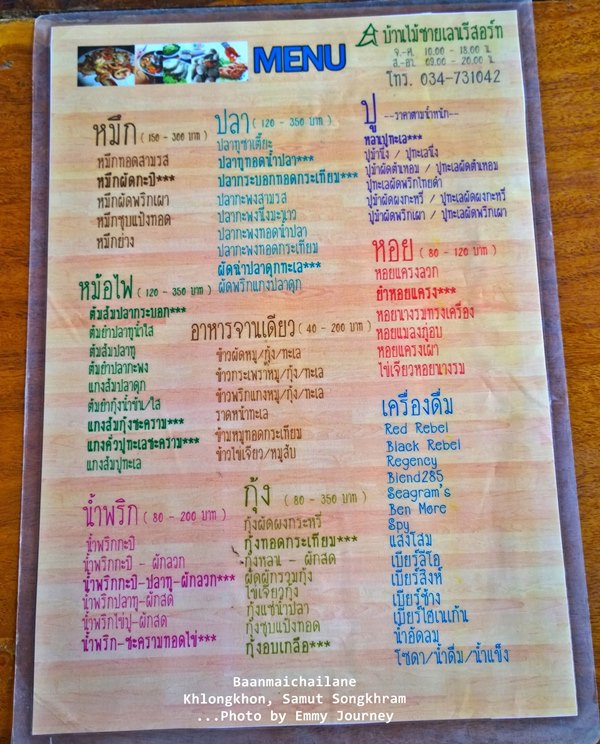 MENU
บ้านไม้ชายเลนรีสอร์ท
จ.-ศ. 10.00 - 18.00 น.
ส.-อา. 09.00 - 20.00 น.
โทร. 034-731042
หมึก ( 150 - 300 บาท )
หมึกทอดสามรส
หมึกผัดกะปิ***
หมึกผัดพริกเผา
หมึกชุบแป้งทอด
หมึกย่าง
ปลา ( 120 - 350 บาท )
ปลาทูซาเตี๊ยะ
ปลาทูทอดน้ำปลา***
ปลากระบอกทอดกระเทียม***
ปลากะพงสามรส
ปลากะพงนึ่งมะนาว
ปลากะพงทอดน้ำปลา
ปลากะพงทอดกระเทียม
ผัดฉ่าปลาดุกทะเล***
ผัดพริกแกงปลาดุก
ปู ---ราคาตามน้ำหนัก---
หลนปูทะเล***
ปูม้านึ่ง / ปูทะเลนึ่ง
ปูม้าผัดต้นหอม / ปูทะเลผัดต้นหอม
ปูทะเลผัดพริกไทยดำ
ปูม้าผัดผงกะหรี่ / ปูทะเลผัดผงกะหรี่
ปูม้าผัดพริกเผา / ปูทะเลผัดพริกเผา
หอย ( 80 - 120 บาท )
หอยแครงลวก
ยำหอยแครง***
หอยนางรมทรงเครื่อง
หอยแมลงภู่อบ
หอยแครงเผา
ไข่เจียวหอยนางรม
หม้อไฟ ( 120 - 350 บาท )
ต้มส้มปลากระบอก***
ต้มยำปลาทูน้ำใส
ต้มส้มปลาทู
ต้มยำปลากะพง
แกงส้มปลาดุก
ต้มยำกุ้งน้ำข้น/ใส
แกงส้มกุ้งชะคราม***
แกงคั่วปูทะเลชะคราม***
แกงส้มปูทะเล
อาหารจานเดียว ( 40 - 200 บาท )
ข้าวผัดหมู/กุ้ง/ทะเล
ข้าวกระเพราหมู/กุ้ง/ทะเล
ข้าวพริกแกงหมู/กุ้ง/ทะเล
ราดหน้าทะเล
ข้าวหมูทอดกระเทียม
ข้าวไข่เจียว/หมูสับ
เครื่องดื่ม
Red Rebel
Black Rebel
Regency
Blend285
Seagram's
Ben More
Spy
แสงโสม
เบียร์ลีโอ
เบียร์สิงห์
เบียร์ช้าง
เบียร์ไฮเนเก้น
น้ำอัดลม
โซดา/น้ำดื่ม/น้ำแข็ง
น้ำพริก ( 80 - 200 บาท )
น้ำพริกกะปิ
น้ำพริกกะปิ - ผักลวก
น้ำพริกกะปิ-ปลาทู-ผักลวก***
น้ำพริกปลาทู-ผักสด
น้ำพริกไข่ปู-ผักสด
น้ำพริก-ชะครามทอดไข่***
กุ้ง ( 80 - 350 บาท )
กุ้งผัดผงกระหรี่
กุ้งทอดกระเทียม***
กุ้งหลน - ผักสด
ผัดผักรวมกุ้ง
ไข่เจียวกุ้ง
กุ้งแช่น้ำปลา
กุ้งชุบแป้งทอด
กุ้งอบเกลือ***
Baanmaichailane
Khlongkhon, Samut Songkhram
...Photo by Emmy Journey